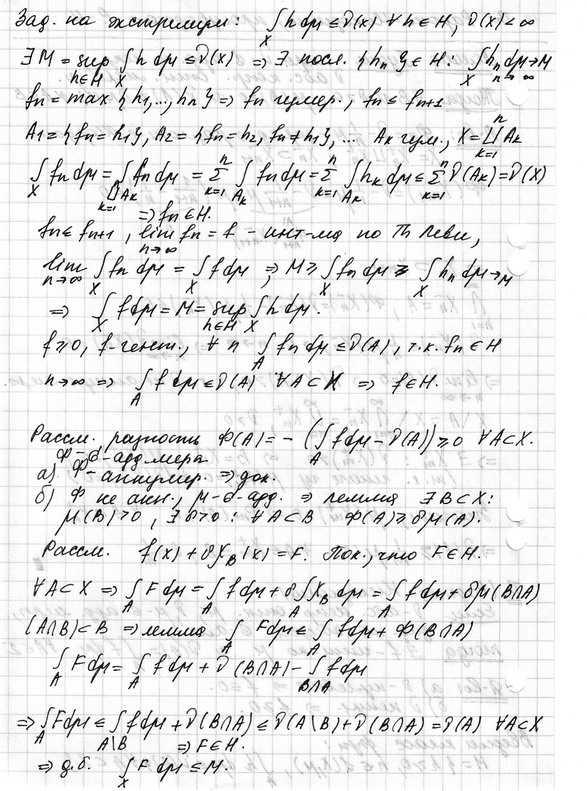 Зад. на экстремум: ∫_X h dμ ≤ ν(X) ∀ h ∈ H, ν(X) < ∞
∃ M = sup_{h∈H} ∫_X h dμ ≤ ν(X) ⇒ ∃ посл. {h_n} ∈ H: ∫_X h_n dμ → M, n→∞
f_n = max {h_1, ..., h_n} ⇒ f_n сумер., f_n ≤ f_{n+1}
A_1 = {f_n = h_1}, A_2 = {f_n = h_2, f_n ≠ h_1}, ... A_k сум., X = ∐_{k=1}^n A_k
∫_X f_n dμ = ∫_{∐A_k} f_n dμ = Σ_{k=1}^n ∫_{A_k} f_n dμ = Σ_{k=1}^n ∫_{A_k} h_k dμ ≤ Σ_{k=1}^n ν(A_k) = ν(X)
⇒ f_n ∈ H.
f_n ≤ f_{n+1}, lim_{n→∞} f_n = f - инт-ма по Th Леви,
lim_{n→∞} ∫_X f_n dμ = ∫_X f dμ; M ≥ ∫_X f_n dμ ≥ ∫_X h_n dμ → M
⇒ ∫_X f dμ = M = sup_{h∈H} ∫_X h dμ.
f ≥ 0, f ∀ n ∫_A f_n dμ ≤ ν(A), т.к. f_n ∈ H
n→∞ ⇒ ∫_A f dμ ≤ ν(A) ∀ A ⊂ X ⇒ f ∈ H.
Рассм. разность Φ(A) = - (∫_A f dμ - ν(A)) ≥ 0 ∀ A ⊂ X.
Φ - σ-адд. мера
а) Φ - аннулир. ⇒ док.
б) Φ не анн., μ - σ-адд. ⇒ лемма ∃ B ⊂ X:
μ(B) > 0, ∃ δ > 0: ∀ A ⊂ B Φ(A) ≥ δμ(A).
Рассм. f(x) + δχ_B(x) = F. Пок., что F ∈ H.
∀ A ⊂ X ⇒ ∫_A F dμ = ∫_A f dμ + δ∫_A χ_B dμ = ∫_A f dμ + δμ(B∩A)
(A∩B) ⊂ B ⇒ лемма ∫_A F dμ ≤ ∫_A f dμ + Φ(B∩A)
∫_A F dμ = ∫_A f dμ + ν(B∩A) - ∫_{B∩A} f dμ
⇒ ∫_A F dμ ≤ ∫_{A\B} f dμ + ν(B∩A) ≤ ν(A\B) + ν(B∩A) = ν(A) ∀ A ⊂ X
⇒ F ∈ H.
⇒ д.б. ∫_X F dμ ≤ M.